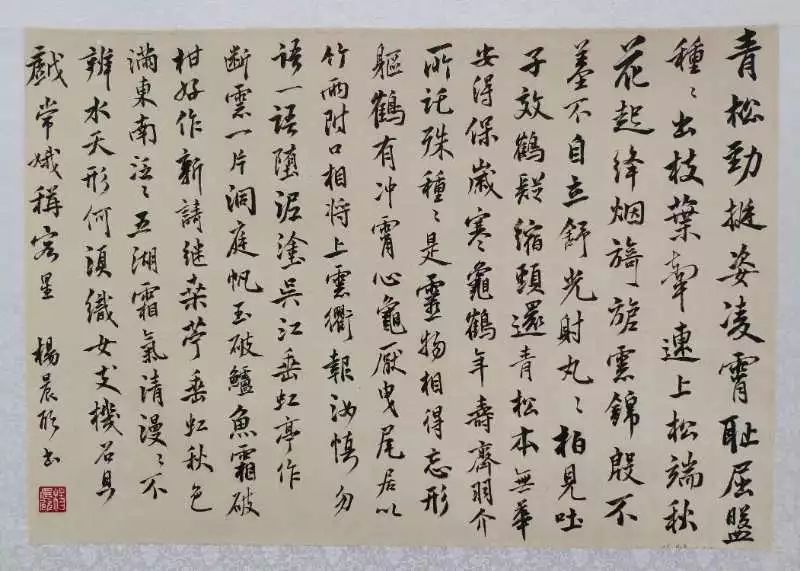 青松勁挺姿凌霄恥屈盤
種〻出枝葉牽連上松端秋
花起絳烟旖旎雲錦殷不
羞不自立舒光射丸〻柏見吐
子效鶴疑縮頭還青松本無華
安得保歲寒龜鶴年壽齊羽介
所託殊種〻是靈物相得忘形
軀鶴有冲霄心龜厭曳尾居以
竹兩附口相將上雲衢報汝慎勿
語一語墮泥塗吳江垂虹亭作
断雲一片洞庭帆玉破鱸魚霜破
柑好作新詩继桑苧垂虹秋色
滿東南泛〻五湖霜氣清漫〻不
辨水天形何須織女支機石且
戲常娥稱客星 楊晨 書